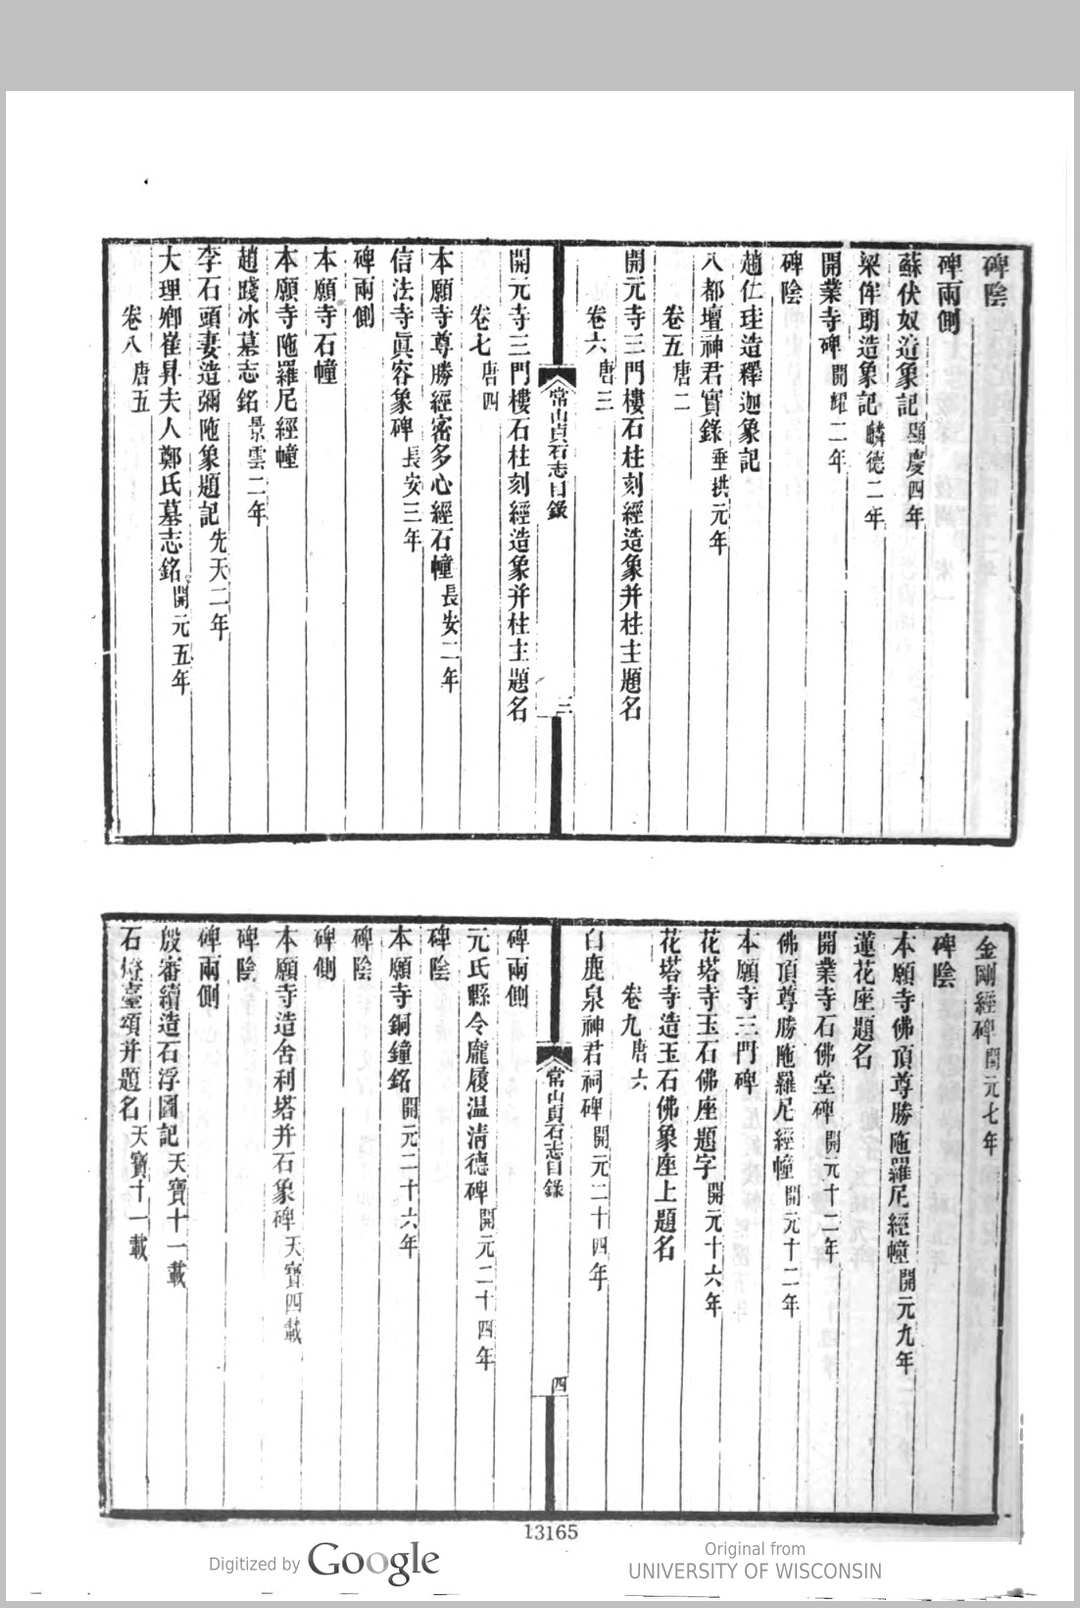 碑陰
碑兩側
蘇伏奴造象記 顯慶四年
梁伴朗造象記 麟德二年
開業寺碑 開耀二年
碑陰
趙仁珪造釋迦象記
八都壇神君實錄 垂拱元年
卷五 唐二
開元寺三門樓石柱刻經造象并柱主題名
卷六 唐三
常山貞石志目錄 三
開元寺三門樓石柱刻經造象并柱主題名
卷七 唐四
本願寺尊勝經密多心經石幢 長安二年
信法寺眞容象碑 長安三年
碑兩側
本願寺石幢
本願寺陁羅尼經幢
趙踐冰墓志銘 景雲二年
李石頭妻造彌陁象題記 先天二年
大理卿崔昇夫人鄭氏墓志銘 開元五年
卷八 唐五
金剛經碑 開元七年
碑陰
本願寺佛頂尊勝陁羅尼經幢 開元九年
蓮花座題名
開業寺石佛堂碑 開元十二年
佛頂尊勝陁羅尼經幢 開元十二年
本願寺三門碑
花塔寺玉石佛座題字 開元十六年
花塔寺造玉石佛象座上題名
卷九 唐六
白鹿泉神君祠碑 開元二十四年
常山貞石志目錄 四
碑兩側
元氏縣令龐履温清德碑 開元二十四年
碑陰
本願寺銅鐘銘 開元二十六年
碑陰
碑側
本願寺造舍利塔并石象碑 天寶四載
碑陰
碑兩側
殷審續造石浮圖記 天寶十一載
石燈臺頌并題名 天寶十一載
13165
Digitized by Google
Original from
UNIVERSITY OF WISCONSIN